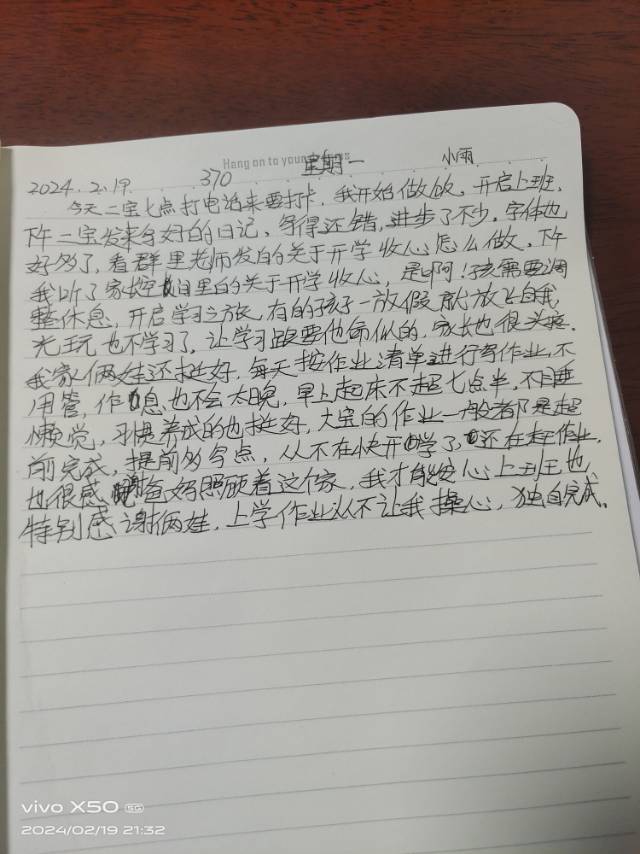 Hang on to your
2024.2.19. 370 星期一 小雨
今天二宝七点打电话来要打卡，我开始做饭，开启上班，
下午二宝发来写好的日记，写得还错，进步了不少，字体也
好多了，看群里老师发的关于开学收心怎么做，下午
我听了家长里的关于开学收心，是啊！孩需要调
整休息，开启学习之旅，有的孩子一放假就放飞自我，
光玩也不学习了，让学习跟要他命似的，家长也很头疼．
我家俩娃还挺好，每天按作业清单进行写作业，不
用管，作息也不会太晚，早上起床不超七点半，不睡
懒觉，习惯养成的也挺好，大宝的作业一般都是超
前完成，提前多写点，从不在快开学了，还在赶作业．
也很感谢爸妈照顾着这个家，我才能安心上班也，
特别感谢俩娃，上学作业从不让我操心，独自完成。
vivo X50 5G
2024/02/19 21:32